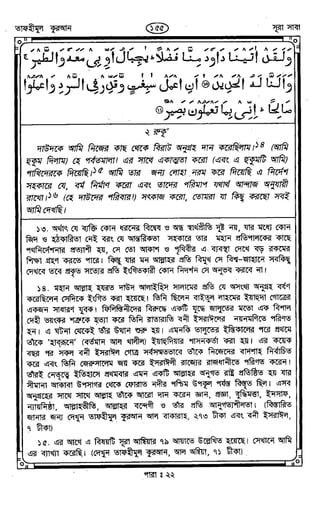 তাফহীমুল কুরআন
১৫৫
সূরা সাবা
وَلَقَدْ اٰتَيْنَا دَاوٗدَ مِنَّا فَضْلًا ؕ يٰجِبَالُ اَوِّبِيْ مَعَهٗ وَالطَّيْرَ ۚ
وَاَلَنَّا لَهُ الْحَدِيْدَ ۙ اَنِ اعْمَلْ سٰبِغٰتٍ وَّقَدِّرْ فِي السَّرْدِ وَاعْمَلُوْا
صَالِحًا ؕ اِنِّيْ بِمَا تَعْمَلُوْنَ بَصِيْرٌ
২ রুকূ'
দাউদকে আমি নিজের কাছ থেকে বিরাট অনুগ্রহ দান করেছিলাম।১৪ (আমি
হুকুম দিলাম) হে পর্বতমালা! এর সাথে একাত্মতা করো (এবং এ হুকুমটি আমি)
পাখিদেরকে দিয়েছি।১৫ আমি তার জন্য লোহা নরম করে দিয়েছি এ নির্দেশ
সহকারে যে, বর্ম নির্মাণ করো এবং তাদের পরিমাপ যথার্থ আন্দাজ অনুযায়ী
রাখো।১৬ (হে দাউদের পরিবার!) সৎকাজ করো, তোমরা যা কিছু করছো সবই
আমি দেখছি।
১৩. অর্থাৎ যে ব্যক্তি কোন ধরনের বিদ্বেষ ও অন্ধ স্বার্থপ্রীতি দুষ্ট নয়, যার মধ্যে কোন
জিদ ও হঠকারিতা নেই বরং যে আন্তরিকতা সহকারে তার মহান প্রতিপালকের কাছে
পথনির্দেশনার প্রত্যাশী হয়, সে তো আকাশ ও পৃথিবীর এ ব্যবস্থা দেখে বড় রকমের
শিক্ষা গ্রহণ করতে পারে। কিন্তু যার মন আল্লাহর প্রতি বিমুখ সে বিশ্ব-জাহানে সবকিছু
দেখবে তবে প্রকৃত সত্যের প্রতি ইংগিতকারী কোন নিদর্শন সে অনুভব করবে না।
১৪. মহান আল্লাহ হযরত দাউদ আলাইহিস সালামের প্রতি যে অসংখ্য অনুগ্রহ বর্ষণ
করেছিলেন সেদিকে ইংগিত করা হয়েছে। তিনি ছিলেন বাইতুল লাহমের ইয়াহুদা গোত্রের
একজন সাধারণ যুবক। ফিলিস্তিনীদের বিরুদ্ধে একটি যুদ্ধে জালুতের মতো এক বিশাল
দেহী ভয়ংকর শত্রুকে হত্যা করে তিনি রাতারাতি বনী ইসরাঈলের নয়নমণিতে পরিণত
হন। এ ঘটনা থেকেই তাঁর উত্থান শুরু হয়। এমনকি তালুতের ইন্তিকালের পরে প্রথমে
তাঁকে 'হাবরূনে' (বর্তমান আল খালীল) ইয়াহুদিয়ার শাসনকর্তা করা হয়। এর কয়েক
বছর পর সকল বনী ইসরাঈল গোত্র সর্বসম্মতভাবে তাঁকে নিজেদের বাদশাহ নির্বাচিত
করে এবং তিনি জেরুশালেম জয় করে ইসরাঈলী রাজ্যের রাজধানীতে পরিণত করেন।
তাঁরই নেতৃত্বে ইতিহাসে প্রথমবার এমন একটি আল্লাহর অনুগত রাষ্ট্র প্রতিষ্ঠিত হয় যার
সীমানা আকাবা উপসাগর থেকে ফোরাত নদীর পশ্চিম উপকূল পর্যন্ত বিস্তৃত ছিল। এসব
অনুগ্রহের সাথে সাথে আল্লাহ তাঁকে আরো দান করেন জ্ঞান, প্রজ্ঞা, বুদ্ধিমত্তা, ইনসাফ,
ন্যায়নিষ্ঠা, আল্লাহভীতি, আল্লাহর বন্দেগী ও তাঁর প্রতি আনুগত্যশীলতা। (বিস্তারিত
জানার জন্য দেখুন তাফহীমুল কুরআন আল বাকারাহ, ২৭৩ টীকা এবং বনী ইসরাঈল,
৭ টীকা)
১৫. এর আগে এ বিষয়টি সূরা আম্বিয়ার ৭৯ আয়াতে উল্লেখিত হয়েছে। সেখানে আমি
এর ব্যাখ্যা করেছি। (দেখুন তাফহীমুল কুরআন, আল আম্বিয়া, ৭১ টীকা)
পারা : ২২